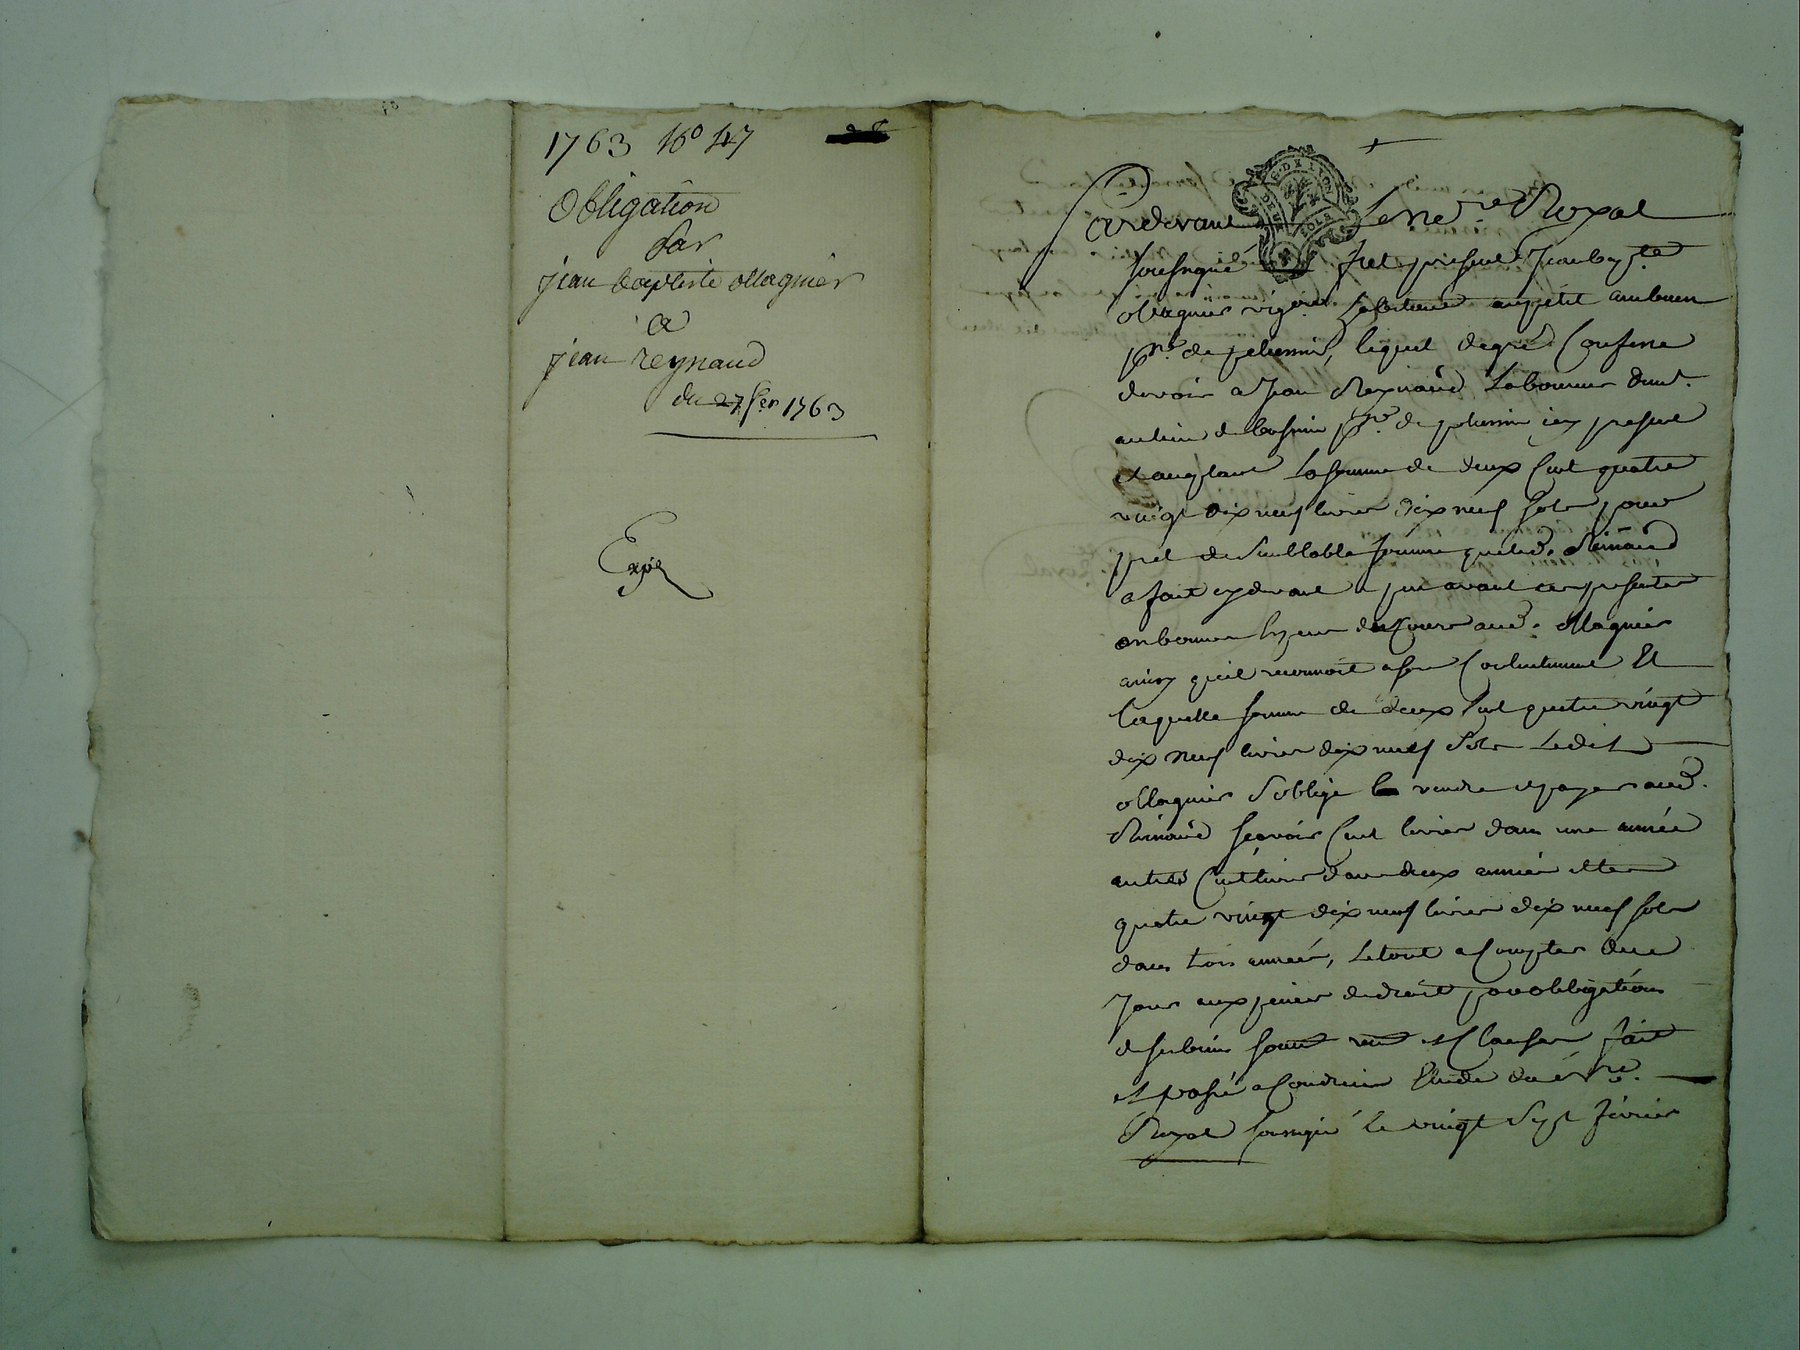 1763 No 47
Obligation
Par
jean baptiste ollagnier
a
jean reynaud
du 27 fer 1763
Expé
Pardevant Le nore Royal
soussigné fut present Jean baptte
ollagnier vigon habitant au petit
psse de pelussin, lequel de gré Confesse
devoir a Jean Reynaud Laboureur demt
au lieu de psse de pelussin icy present
et acceptant La somme de deux Cent quatre
vingt dix neuf livres dix neuf sols pour
pret de Semblable somme que led. Rainaud
a fait cydevant a avant ces presentes
en bonnes Especes de Cours aud. ollagnier
ainsy qu'il reconnoit a son Contentement Et
laquelle somme de deux Cent quatre vingt
dix neuf livres dix neuf Sols Ledit
ollagnier S'oblige rendre et payer aud.
Rainaud scavoir Cent livres dans une année
autres Cent livres dans deux années et les
quatre vingt dix neuf livres dix neuf sols
dans trois années, Le tout a Compter de ce
Jour aux peines de droit par obligation
de ses biens soumis et Clauses fait
et passé a Condrieu Etude du nre
Royal soussigné Le vingt Sept fevrier